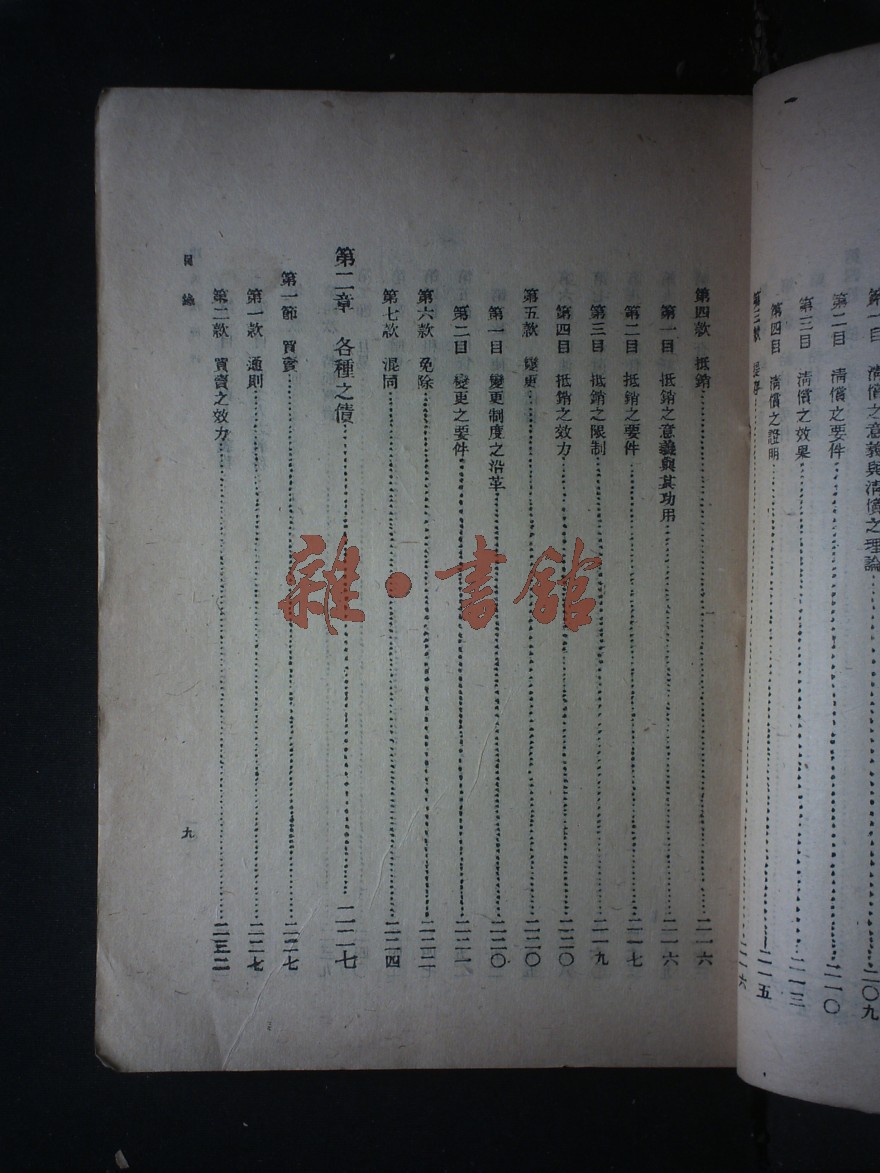 第一目 清償之意義與清償之理論………二〇九
第二目 清償之要件………二一〇
第三目 清償之效果………二一三
第四目 清償之證明………二一五
第三款………二一六
第四款 抵銷………二一六
第一目 抵銷之意義與其功用………二一六
第二目 抵銷之要件………二一七
第三目 抵銷之限制………二一九
第四目 抵銷之效力………二二〇
第五款 變更………二二〇
第一目 變更制度之沿革………二二〇
第二目 變更之要件………二二一
第六款 免除………二二二
第七款 混同………二二四
第二章 各種之債………二二七
第一節 買賣………二二七
第一款 通則………二二七
第二款 買賣之效力………二三二
目錄
九
雜·書館